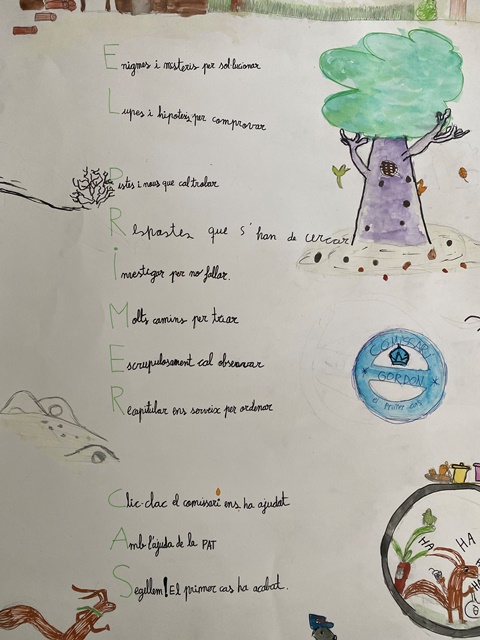 Enigmes i misteris per sol·lucionar
Lupes i hipotesis per comprovar
Pistes i nous que cal trobar
Respostes que s'han de cercar
Investigar per no fallar.
Molts camins per triar
Escrupulosament cal observar
Recapitular ens serveix per ordenar
COMISSARI
GORDON
El primer cas
Clic-clac el comissari ens ha ajudat
Amb l'ajuda de la PAT
Segellem! El primer cas ha acabat.
HA
HA
HA